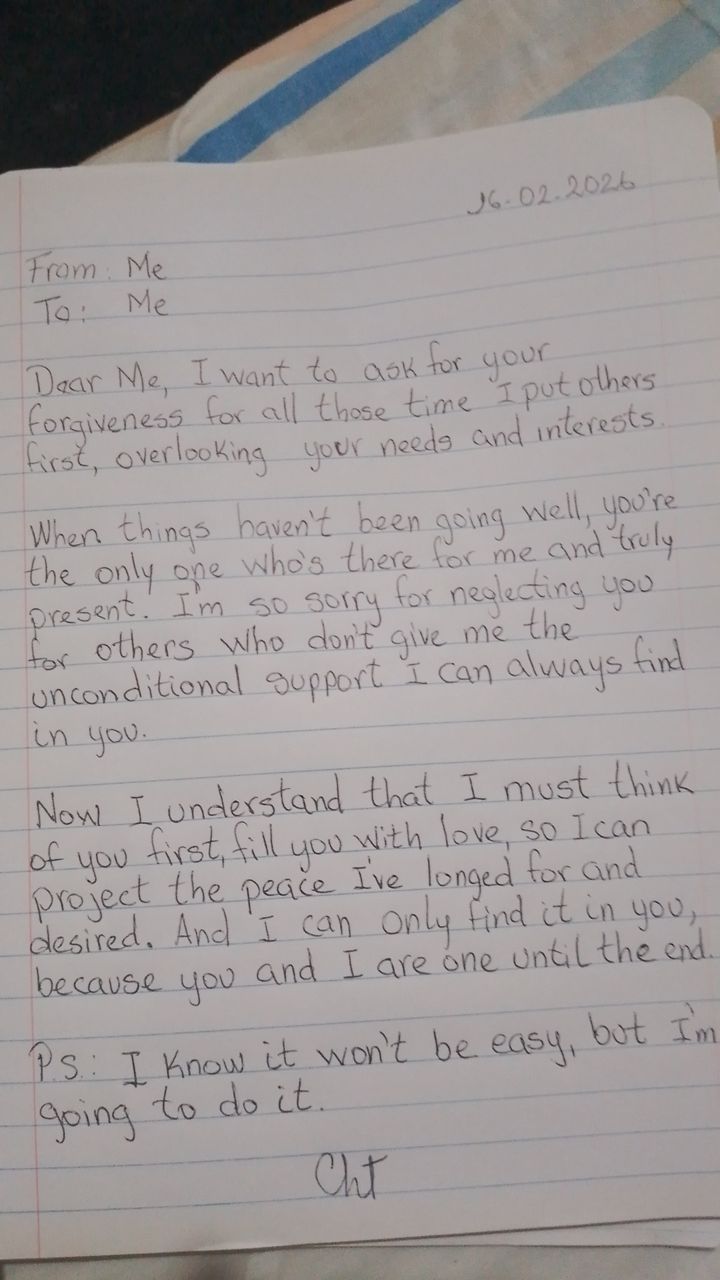 16.02.2026
From: Me
To: Me
Dear Me, I want to ask for your
forgiveness for all those time I put others
first, overlooking your needs and interests.
When things haven't been going well, you're
the only one who's there for me and truly
present. I'm so sorry for neglecting you
for others who don't give me the
unconditional support I can always find
in you.
Now I understand that I must think
of you first, fill you with love, so I can
project the peace I've longed for and
desired. And I can only find it in you,
because you and I are one until the end.
P.S.: I know it won't be easy, but I'm
going to do it.
ChT